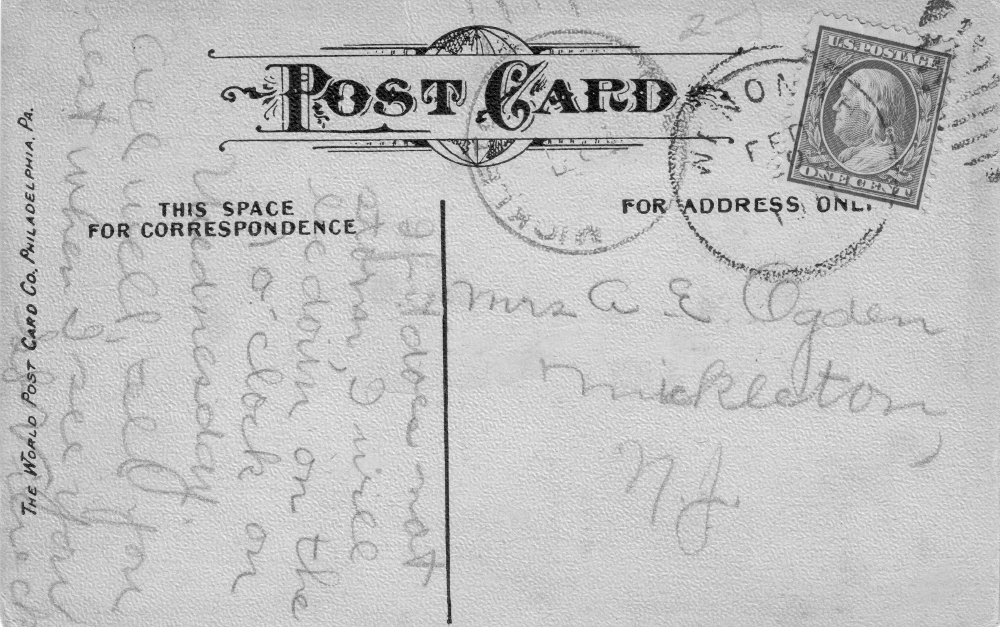 POST CARD
U.S. POSTAGE
ONE CENT
N.J.
FEB
THE WORLD POST CARD CO., PHILADELPHIA, PA.
THIS SPACE
FOR CORRESPONDENCE
FOR ADDRESS ONL
If it does not
storm, I will
be down on the
1 o'clock on
Wednesday.
All well, tell you
rest when I see you
Mrs A. E. Ogden
Mickleton,
N.J